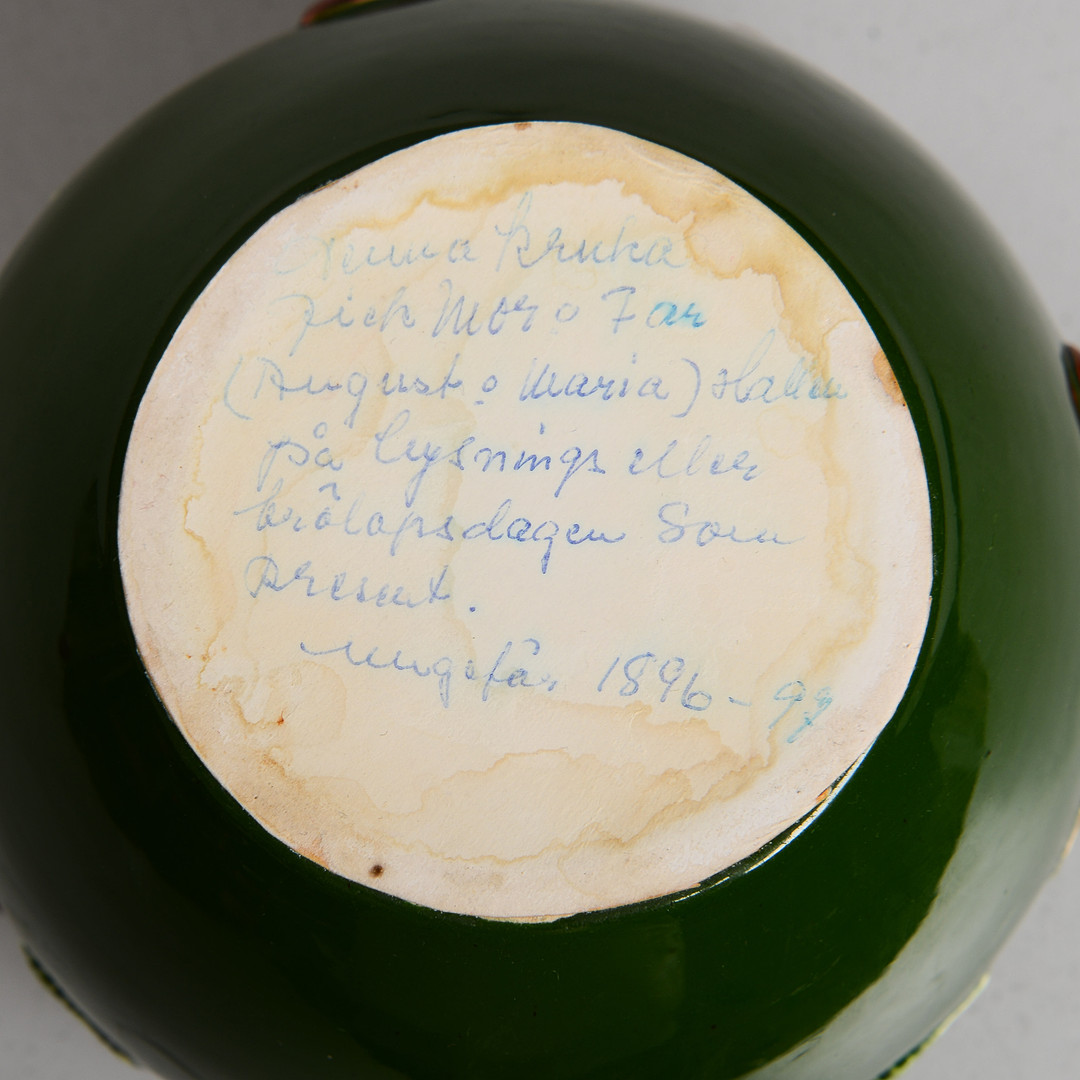 Denna kruka
fick Mor o Far
(August o Maria) Hallin
på lysnings eller
brölopsdagen Som
present.
ungefär 1896-97